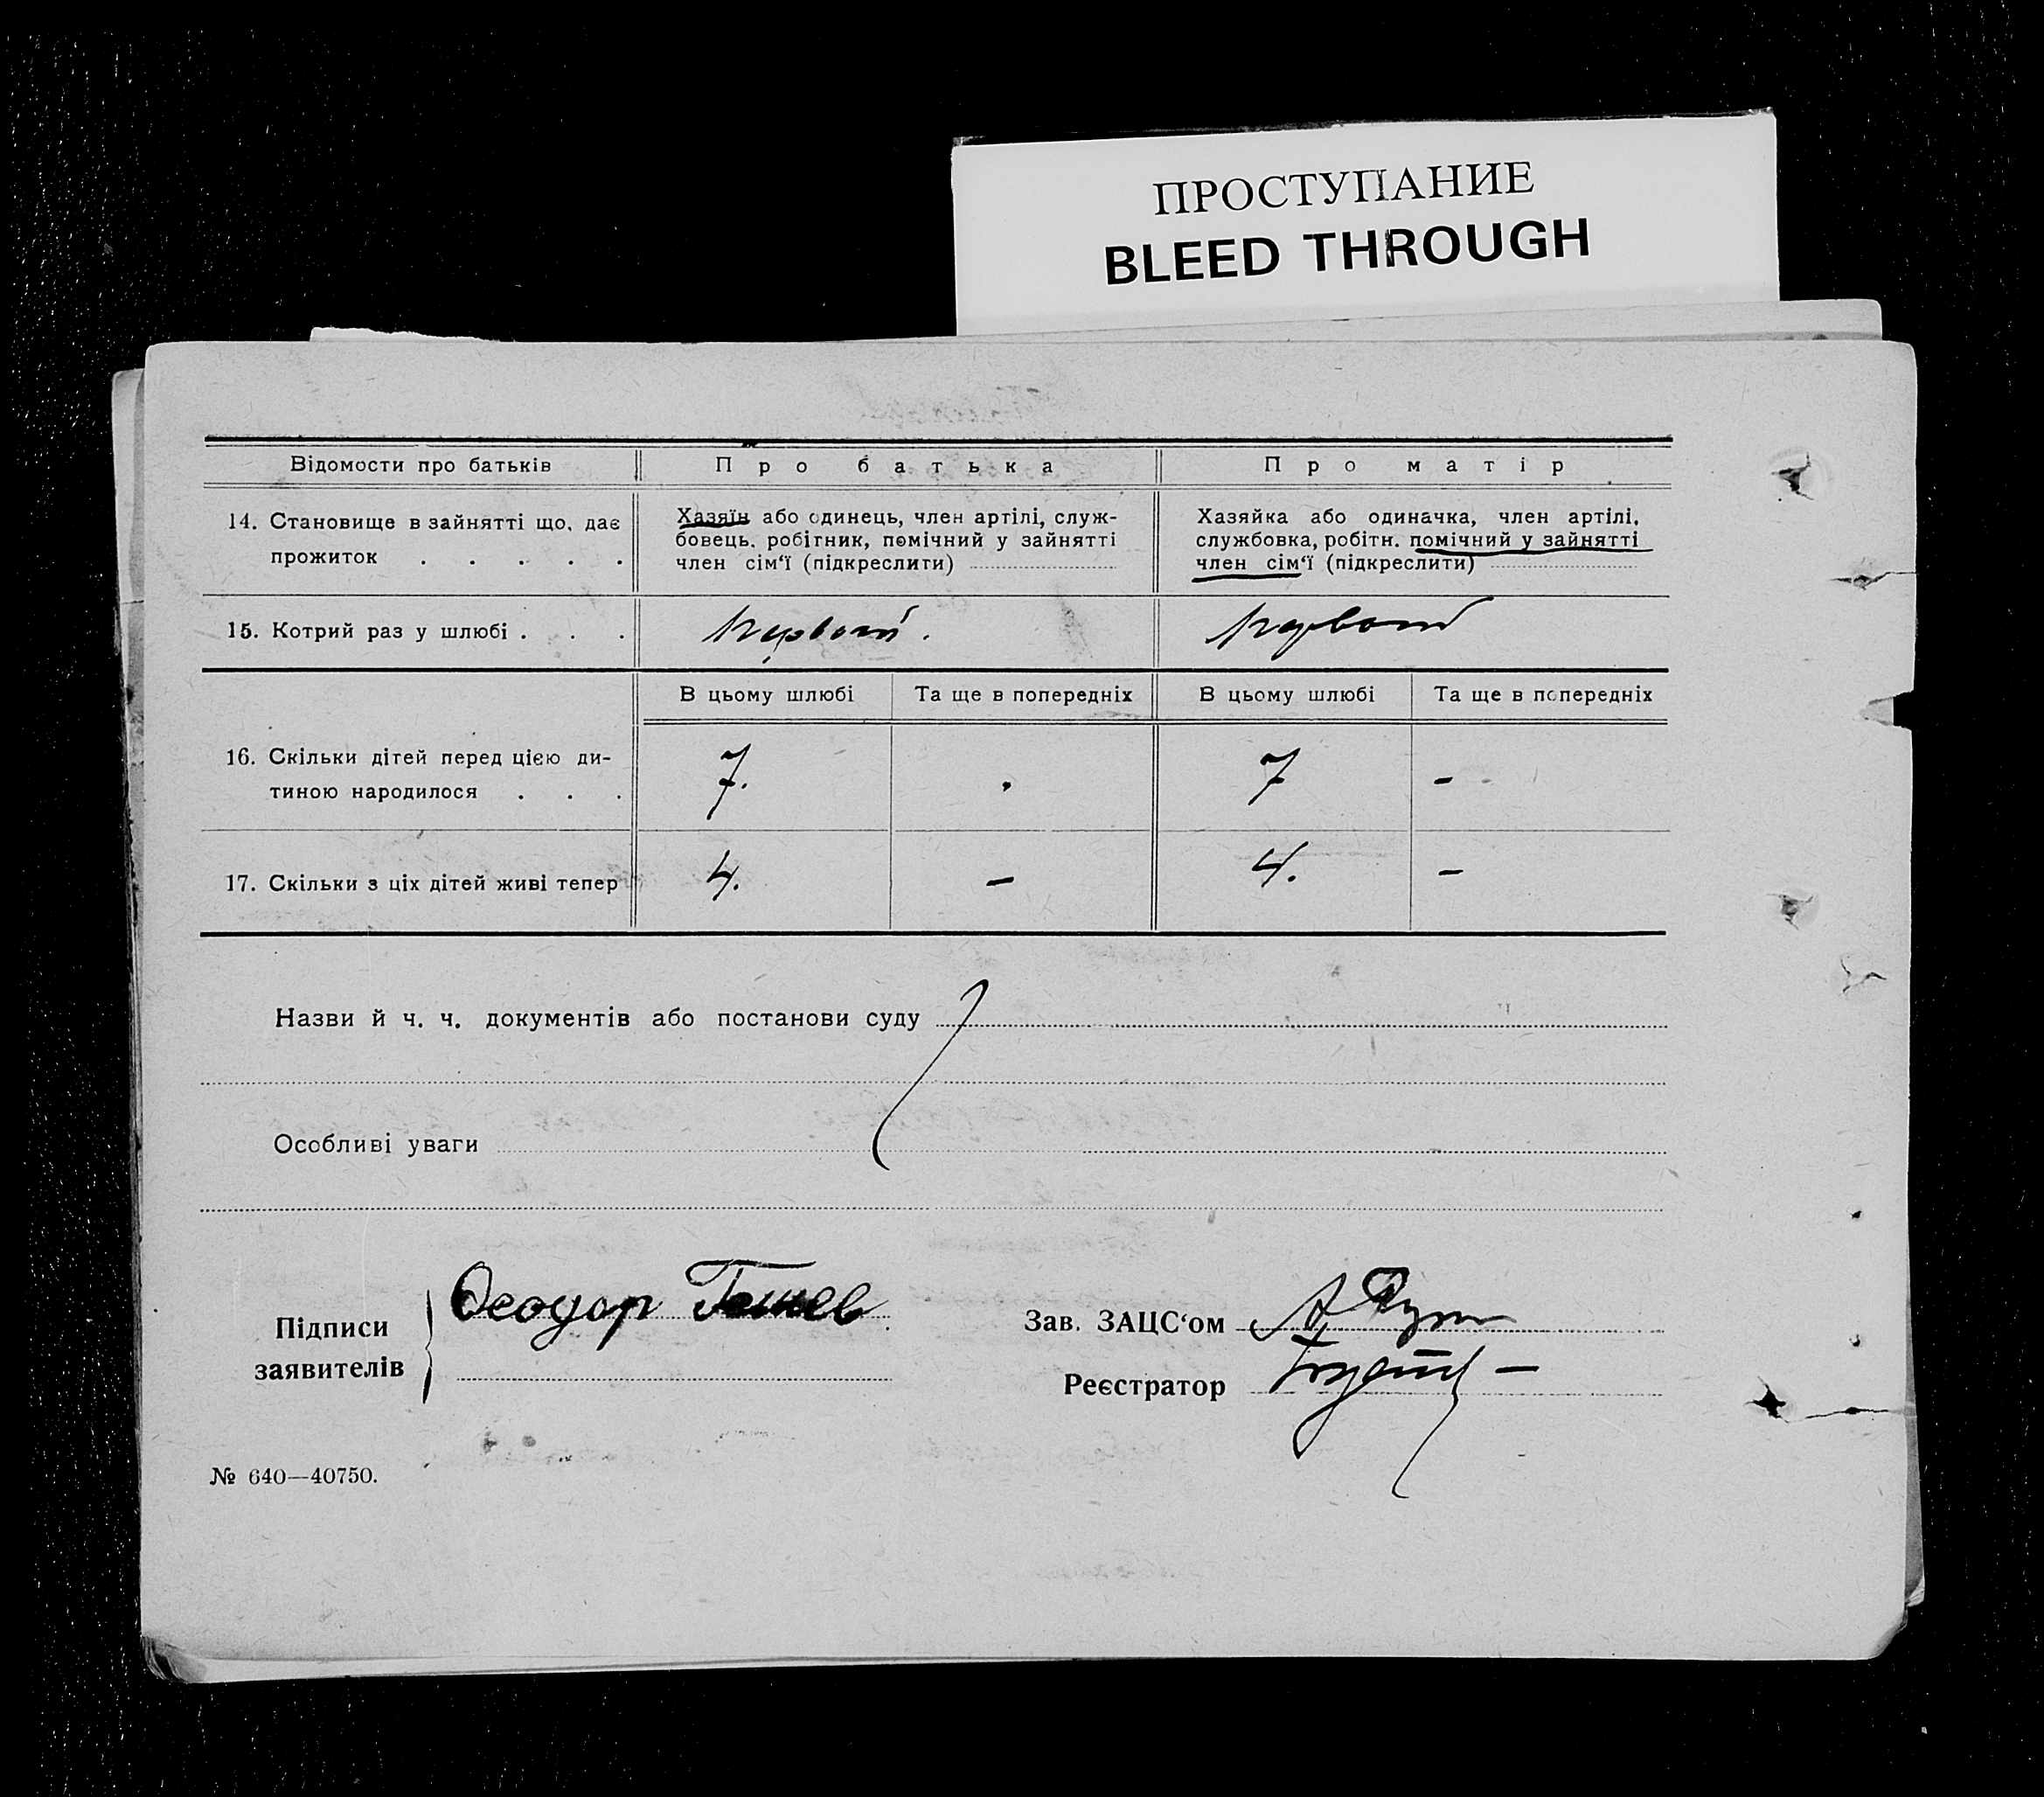 ПРОСТУПАНИЕ
BLEED THROUGH
Відомости про батьків Про батька Про матір
14. Становище в зайнятті що, дає прожиток . . . . .
Хазяїн або одинець, член артілі, служ-
бовець, робітник, помічний у зайнятті
член сім‘ї (підкреслити)
Хазяйка або одиначка, член артілі,
службовка, робітн. помічний у зайнятті
член сім‘ї (підкреслити)
15. Котрий раз у шлюбі . . . первый. первый
В цьому шлюбі Та ще в попередніх В цьому шлюбі Та ще в попередніх
16. Скільки дітей перед цією ди-
тиною народилося . . . 7. . 7 -
17. Скільки з ціх дітей живі тепер 4. - 4. -
Назви й ч. ч. документів або постанови суду
Особливі уваги
Підписи
заявителів
Феодор
Зав. ЗАЦС‘ом
Реєстратор
№ 640—40750.